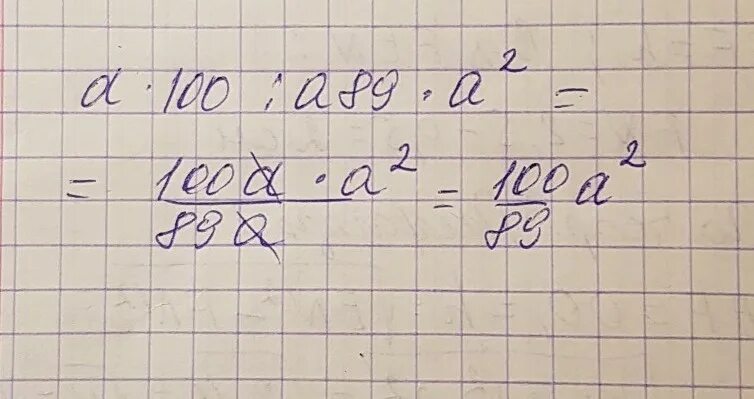 a · 100 : a 89 · a² =
= 100a · a² / 89a = 100/89 a²